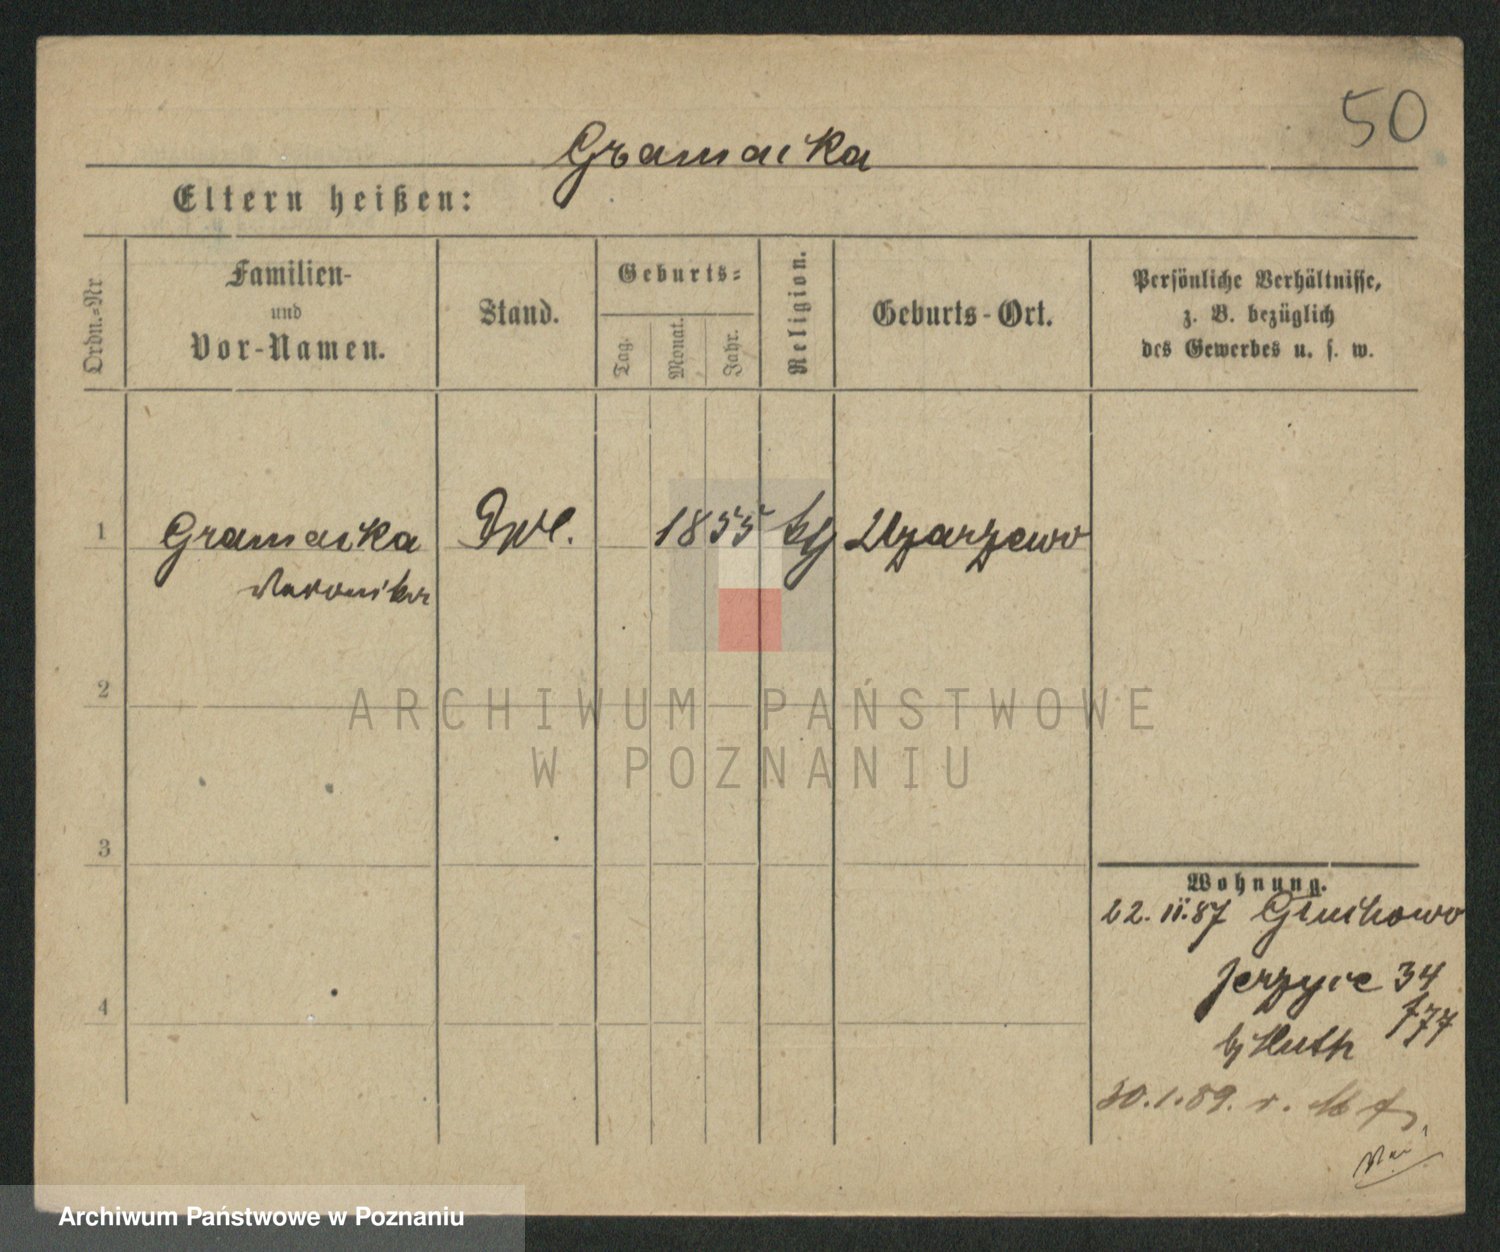 50
Gramacka
Eltern heißen:
Ordn.-Nr
Familien-
und
Vor-Namen.
Stand.
Geburts-
Tag.
Monat.
Jahr.
Religion.
Geburts-Ort.
Persönliche Verhältnisse,
z. B. bezüglich
des Gewerbes u. s. w.
1
Gramacka
1855
Uzarzewo
Veronika
2
ARCHIWUM PAŃSTWOWE
W POZNANIU
3
Wohnung.
22. 11. 87 Gluchowo
Jerzyce 34
f77
bj Huth
4
30.1.89. v.
Archiwum Państwowe w Poznaniu